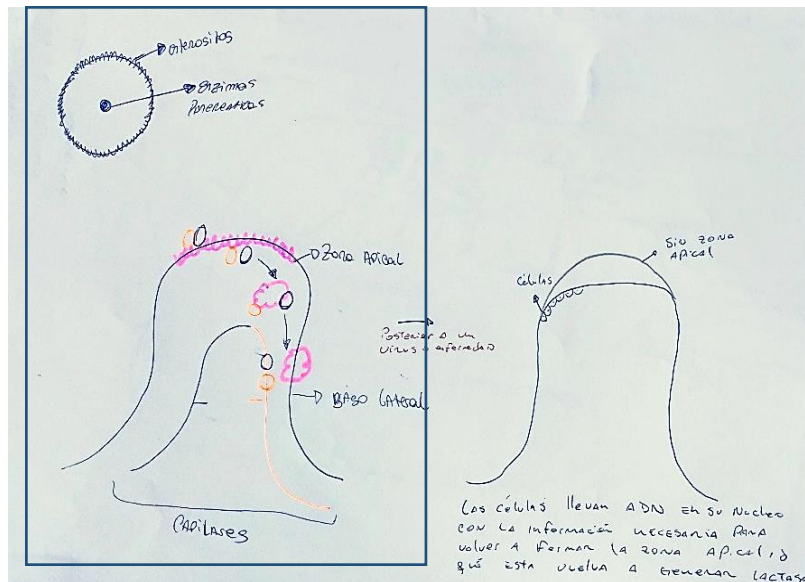 enterositos
Enzimas
Pancreaticas
Zona Apical
Baso Lateral
Capilares
Posterior a un
virus o enfermedad
Sin zona
apical
Células
Las células llevan ADN en su núcleo
con la información necesaria para
volver a formar la zona apical, y
qué esta vuelva a generar lactasa